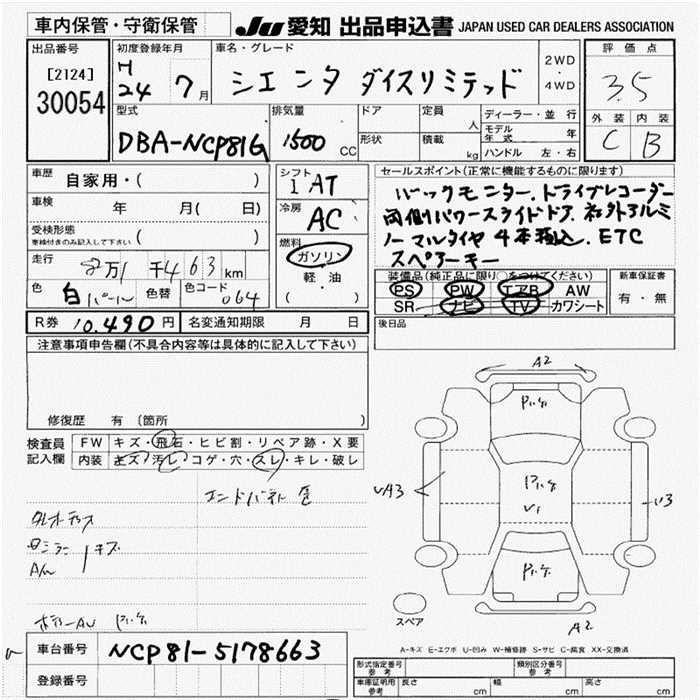 車内保管・守衛保管
JU 愛知 出品申込書 JAPAN USED CAR DEALERS ASSOCIATION
出品番号
[2124]
30054
初度登録年月
H
24 7月
車名・グレード
シエンタ ダイスリミテッド
2WD
・
4WD
評価点
3.5
外装 内装
C B
型式
DBA-NCP81G
排気量
1500 CC
ドア
形状
定員 人
積載 kg
ディーラー・並行
モデル年式 年
ハンドル 左・右
車歴 自家用・( )
車検 年 月( 日)
受検形態
車検付きのみ記入して下さい ( )
走行 2万1千463km
色 白パール 色替 色コード 064
シフト
I AT
冷房
AC
燃料
ガソリン
軽油
( )
セールスポイント(正常に機能するものに限ります)
バックモニター、ドライブレコーダー
両側パワースライドドア、社外アルミ
ノーマルタイヤ4本積込、ETC
スペアーキー
装備品(純正品に限り○をつけてください)
PS PW エアB AW
SR ナビ TV カワシート
新車保証書
有・無
R券 10,490円 名変通知期限 月 日
後日品
注意事項申告欄(不具合内容等は具体的に記入して下さい)
修復歴 有〔箇所 〕
検査員
記入欄
FW キズ・飛石・ヒビ割・リペア跡・X要
内装 キズ・汚レ・コゲ・穴・スレ・キレ・破レ
エンドパネル
キズ
A2
UA3
U3
A2
スペア
A-キズ E-エクボ U-凹み W-補修跡 S-サビ C-腐食 XX-交換済
車台番号 NCP81-5178663
登録番号
形式指定番号
参考
類別区分番号
参考
車庫証明用
参考
長さ cm 幅 cm 高さ cm